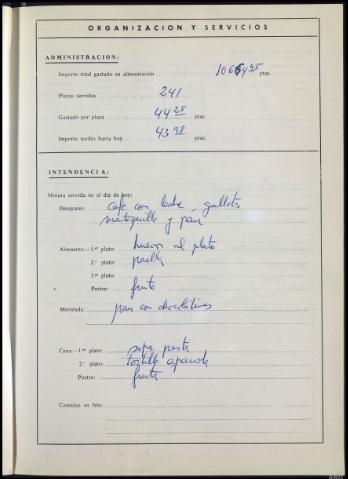 ORGANIZACION Y SERVICIOS
ADMINISTRACION:
Importe total gastado en alimentación 10664'45 ptas.
Plazas servidas 241
Gastado por plaza 44'25 ptas.
Importe medio hasta hoy 43'98 ptas.
INTENDENCIA:
Minuta servida en el día de hoy:
Desayuno: café con leche - galletas
mantequilla y pan
Almuerzo.—1.er plato: huevos al plato
2.º plato: paella
3.er plato:
Postre: fruta
Merienda: pan con chocolatinas
Cena.—1.er plato: sopa pasta
2.º plato: tortilla española
Postre: fruta
Comidas en frío: